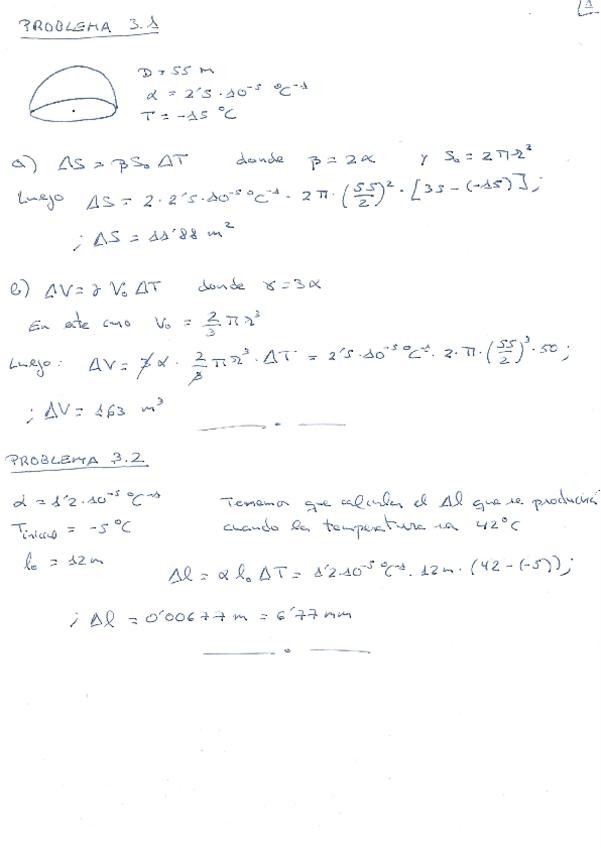 1
PROBLEMA 3.1
D = 55 m
α = 2'5·10⁻⁵ ºC⁻¹
T = -15 ºC
a) ΔS = β S₀ ΔT donde β = 2α y S₀ = 2πr²
Luego ΔS = 2·2'5·10⁻⁵ ºC⁻¹ · 2π·(55/2)² · [35-(-15)];
; ΔS = 11'88 m²
b) ΔV = γ V₀ ΔT donde γ = 3α
En este caso V₀ = 2/3 πr³
Luego: ΔV = 3α · 2/3 πr³ · ΔT = 2'5·10⁻⁵ ºC⁻¹ · 2·π·(55/2)³·50;
; ΔV = 163 m³
PROBLEMA 3.2
α = 1'2·10⁻⁵ ºC⁻¹ Tenemos que calcular el Δl que se producirá
Tinicial = -5 ºC cuando la temperatura sea 42ºC
l₀ = 12 m
Δl = α l₀ ΔT = 1'2·10⁻⁵ ºC⁻¹ · 12m · (42-(-5));
; Δl = 0'00677 m = 6'77 mm